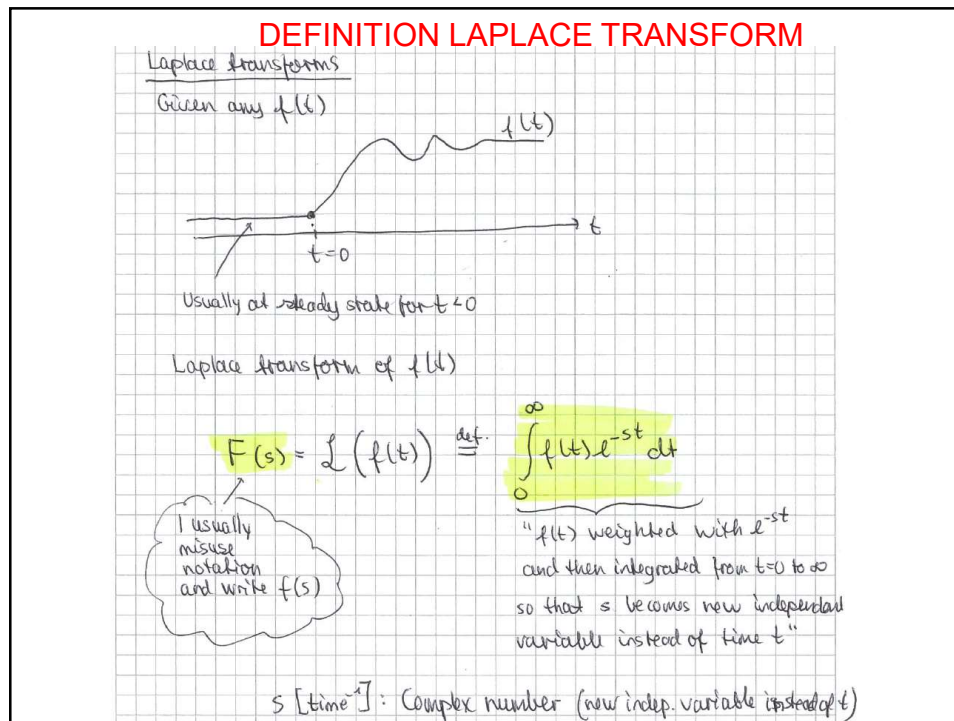 DEFINITION LAPLACE TRANSFORM
Laplace transforms
Given any f(t)
f(t)
t
t=0
Usually at steady state for t<0
Laplace transform of f(t)
F(s) = ℒ(f(t)) def.= ∫₀^∞ f(t) e^-st dt
I usually
misuse
notation
and write f(s)
"f(t) weighted with e^-st
and then integrated from t=0 to ∞
so that s becomes new independent
variable instead of time t"
s [time^-1]: Complex number (new indep. variable instead of t)